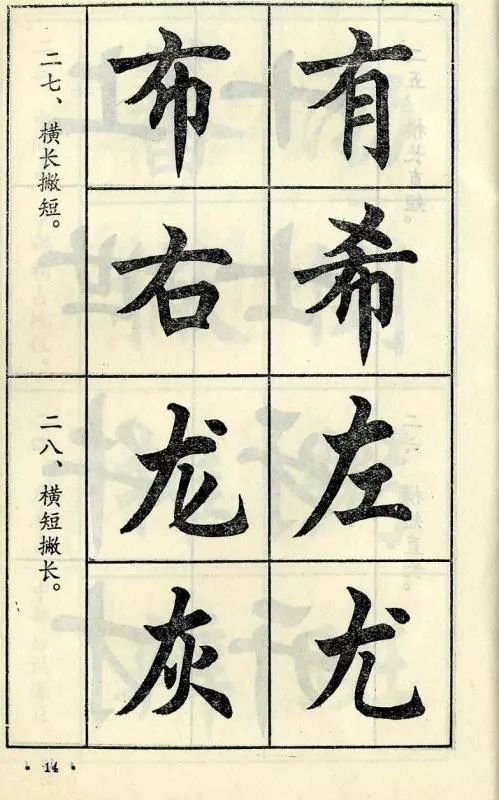 二七、横长撇短。
布有
右希
二八、横短撇长。
龙左
灰尤
· 14 ·